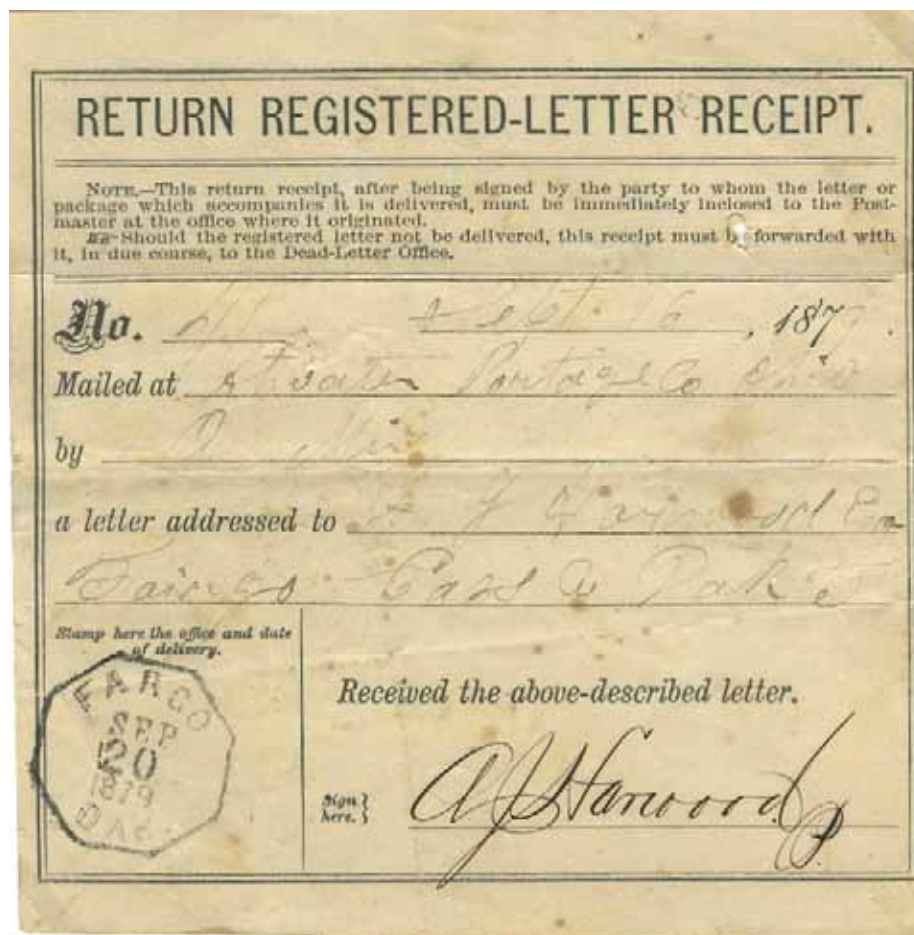 RETURN REGISTERED-LETTER RECEIPT.
NOTE.—This return receipt, after being signed by the party to whom the letter or
package which accompanies it is delivered, must be immediately inclosed to the Post-
master at the office where it originated.
Should the registered letter not be delivered, this receipt must be forwarded with
it, in due course, to the Dead-Letter Office.
No. Sept. 16, 187
Mailed at Atwater Portage Co Ohio
by
a letter addressed to
Fargo Cass Co Dak
Stamp here the office and date
of delivery.
FARGO
SEP
20
1879
DAK.
Received the above-described letter.
Sign
here.
A J Harwood